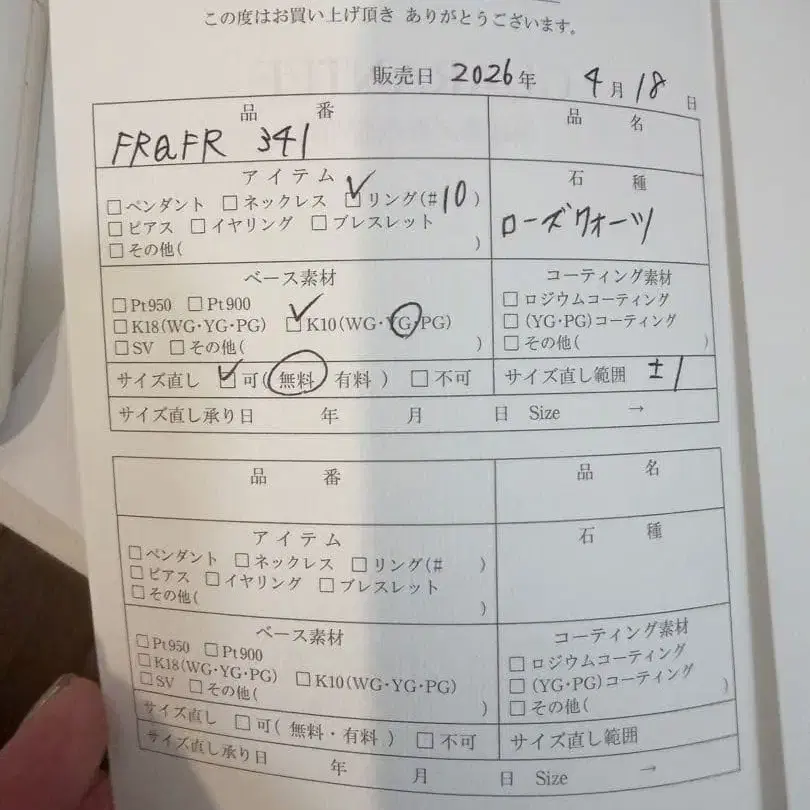 この度はお買い上げ頂き ありがとうございます。
販売日 2026年 4月18日
品番 品名
FRaFR 341
アイテム 石種
□ペンダント □ネックレス ☑リング(#10)
□ピアス □イヤリング □ブレスレット
□その他( )
ローズクォーツ
ベース素材 コーティング素材
□Pt950 □Pt900 □ロジウムコーティング
□K18(WG・YG・PG) ☑K10(WG・YG・PG) □(YG・PG)コーティング
□SV □その他( ) □その他( )
サイズ直し ☑可( 無料 有料 ) □不可 サイズ直し範囲 ±1
サイズ直し承り日 年 月 日 Size →
品番 品名
アイテム 石種
□ペンダント □ネックレス □リング(# )
□ピアス □イヤリング □ブレスレット
□その他( )
ベース素材 コーティング素材
□Pt950 □Pt900 □ロジウムコーティング
□K18(WG・YG・PG) □K10(WG・YG・PG) □(YG・PG)コーティング
□SV □その他( ) □その他( )
サイズ直し □可( 無料・有料 ) □不可 サイズ直し範囲
サイズ直し承り日 年 月 日 Size →